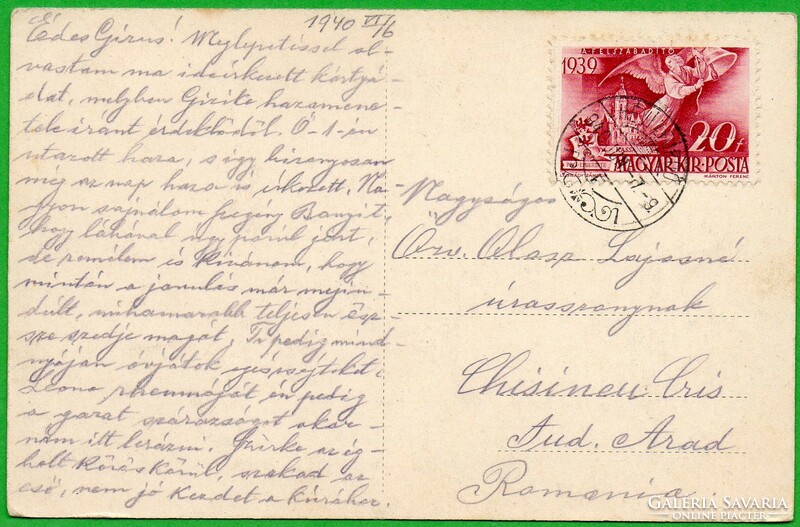 1940 VI/6
Édes Gizus! Meglepetéssel ol-
vastam ma ideérkezett kártyá-
dat, melyben Gizike hazamene-
tele iránt érdeklődöl. Ő 1-én
utazott haza, s így bizonyosan
még az nap haza is érkezett. Na-
gyon sajnálom szegény
hogy lábával úgy pórúl járt,
de remélem és kívánom, hogy
miután a javulás már megin-
dúlt, mihamarabb teljesen ösz-
sze szedje magát. Ti pedig mind-
nyájan óvjátok egészségteket.
Ilona rheumáját én pedig
a garat szárazságot akar-
nám itt lerázni. Szürke az ég-
bolt körös körül, szakad az
eső, nem jó kezdet a kúrához.
A FELSZABADÍTÓ
1939
20f
MAGYAR·KIR·POSTA
MÁRTON FERENC
Nagyságos
Özv. Olasz Lajosné
úrasszonynak
Chisineu Cris
Jud. Arad
Romania
GALERIA SAVARIA
ONLINE PIACTÉR